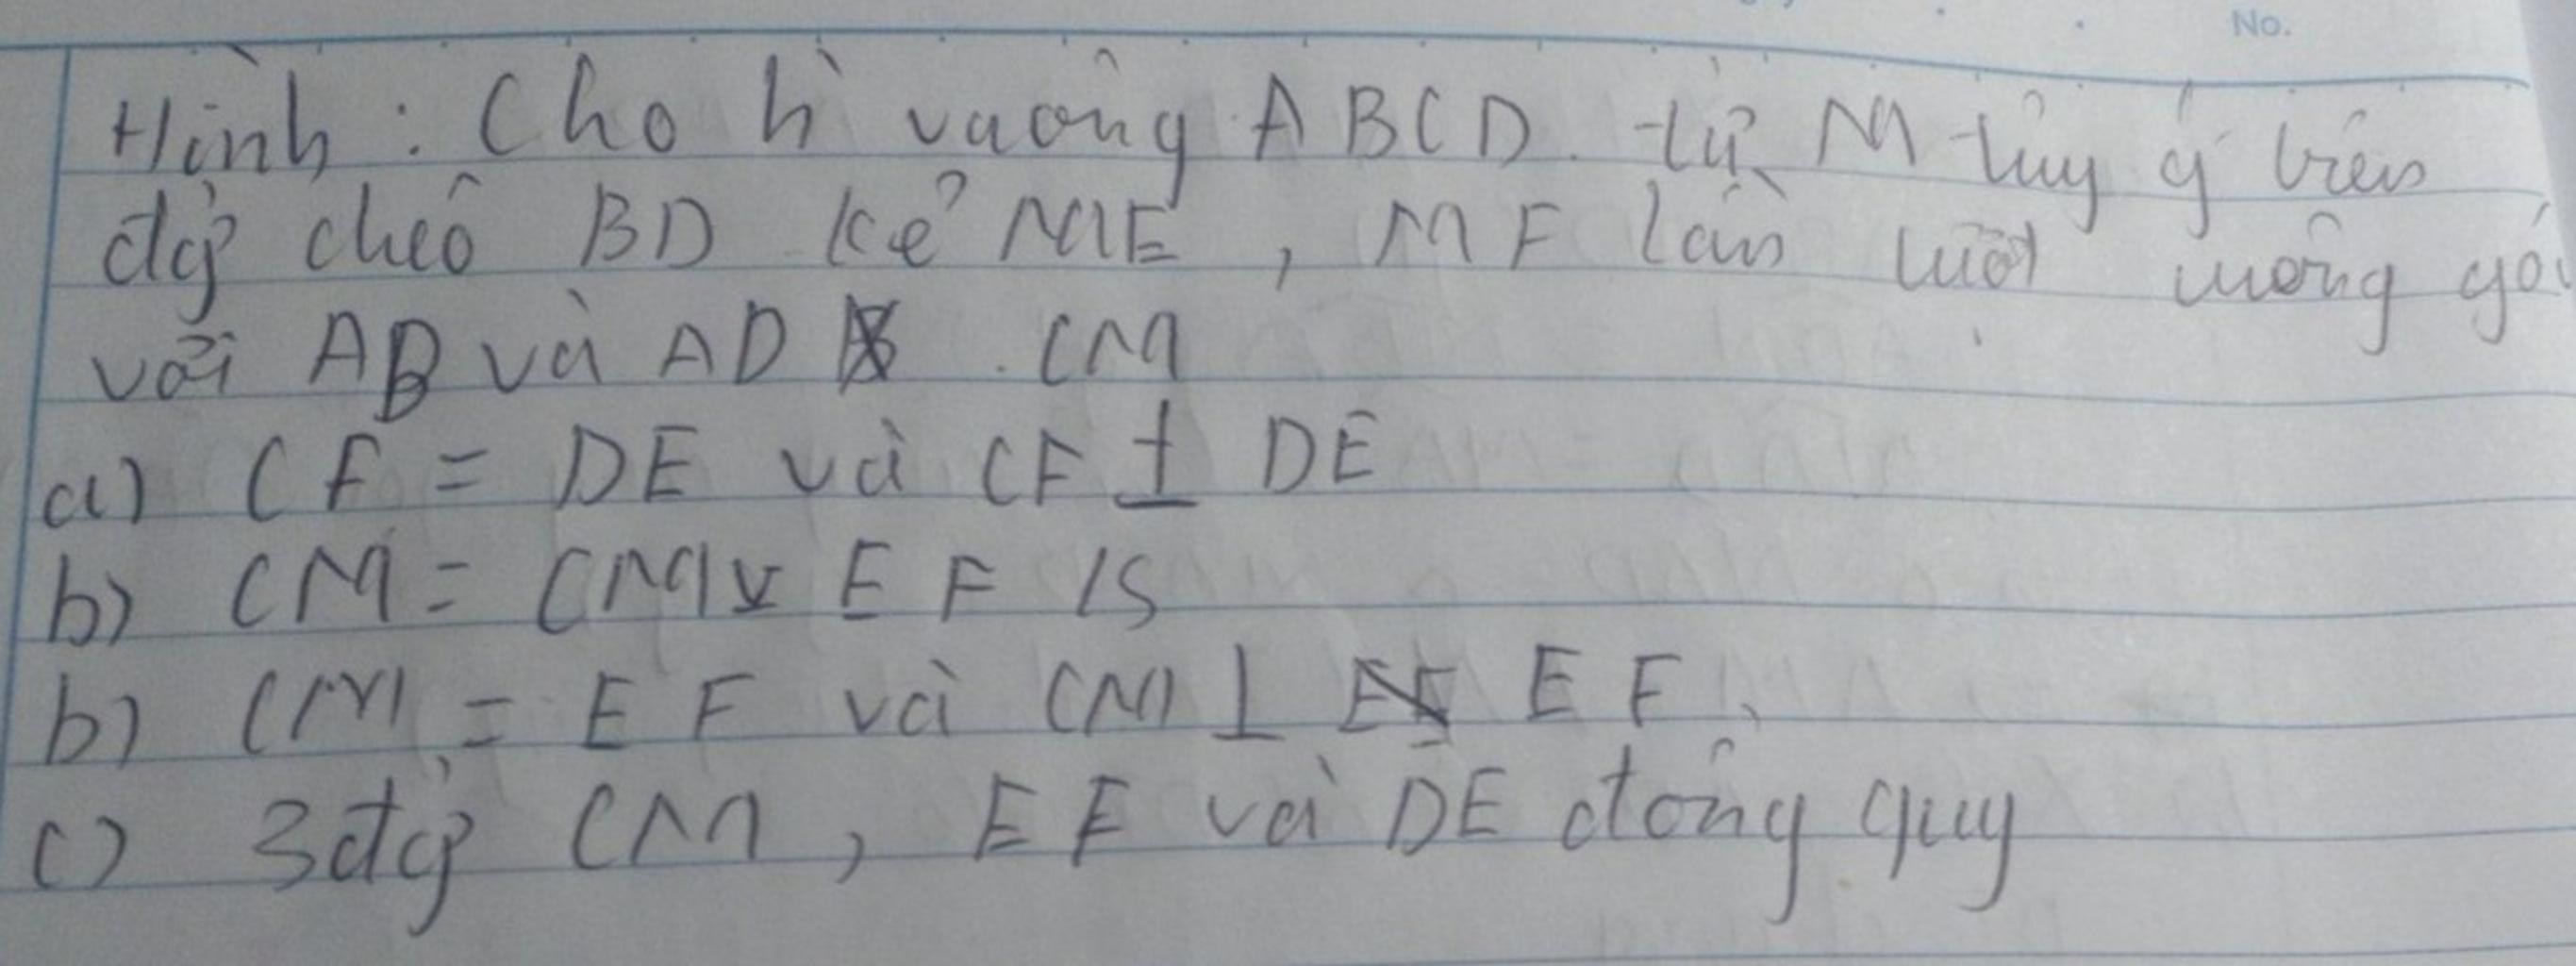 No.
Hình : Cho h vuông ABCD. từ M tùy ý trên
đg chéo BD kẻ ME, MF lần lượt vuông gó
với AB và AD . CM
a) CF = DE và CF ⊥ DE
b) CM = CM v EF
b) CM = EF và CM ⊥ EF.
c) 3 đg CM, EF và DE đồng quy